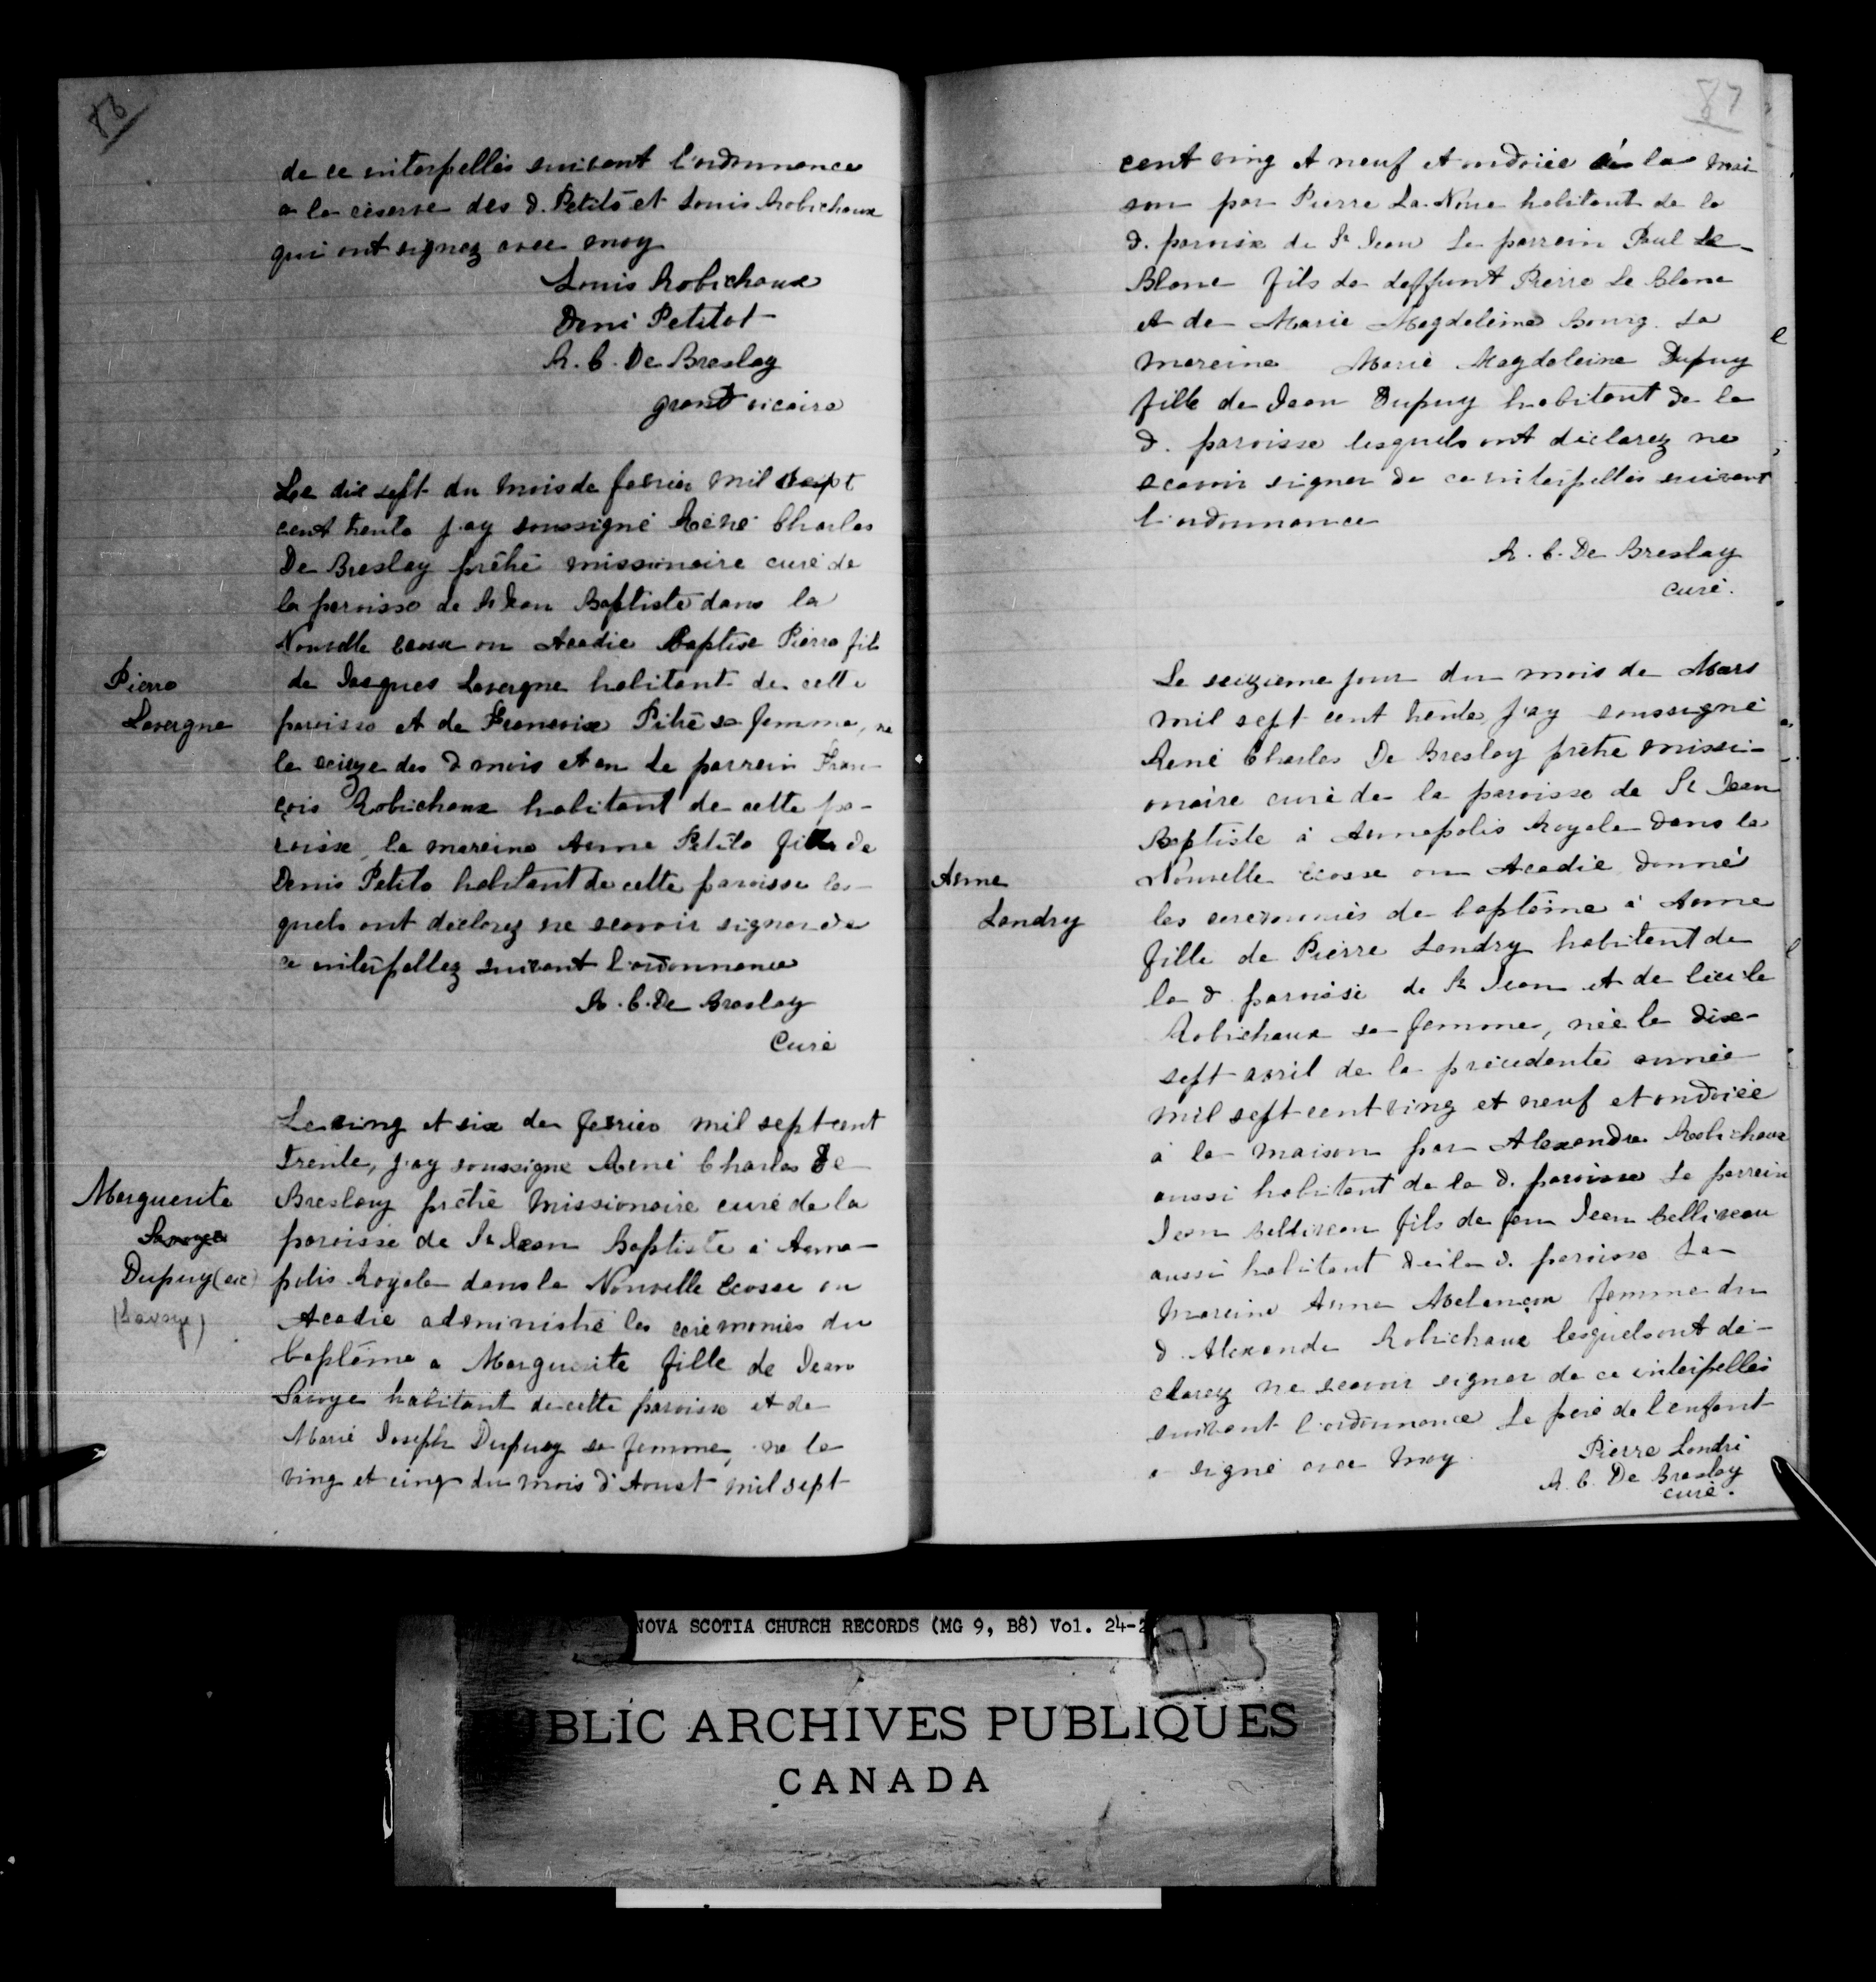 86
de ce interpellés suivant l'ordonnance
a la réserve des d. Petito et Louis Robichaux
qui ont signez avec moy
Louis Robichaux
Deni Petitot
R. C. De Breslay
grand vicaire
Le dix sept du mois de fevrier mil sept
cent trente j'ay soussigné René Charles
De Breslay prêtre missionaire curé de
la paroisse de St Jean Baptiste dans la
Nouvelle Ecosse ou Acadie Baptisé Pierre fils
Pierre
Lavergne
de Jacques Lavergne habitant de cette
paroisse et de Francoise Pitre sa femme, ne
le seizze des d mois et an le parrein Fran-
çois Robichaux habitant de cette pa-
roisse, la mareine Anne Petito fille de
Denis Petito habitant de cette paroisse les-
quels ont déclarez ne scavoir signer de
ce interpellez suivant l'ordonnance
R. C. De Breslay
Curé
Le ving et six de fevrier mil sept cent
trente, j'ay soussigné René Charles De
Breslay prêtre missionaire curé de la
paroisse de St Jean Baptiste à Anna-
polis Royale dans la Nouvelle Ecosse ou
Acadie administré les cérémonies du
baptême a Marguerite fille de Jean
Savoye habitant de cette paroisse et de
Marie Joseph Dupuy sa femme, ne le
ving et cinq du mois d'Aoust mil sept
Marguerite
Savoye
Dupuy (sic)
(Savoye)
87
cent ving et neuf et ondoiée à la mai-
son par Pierre La Nüe habitant de la
d. paroisse de St Jean Le parrein Paul Le-
Blanc fils de deffunt Pierre Le Blanc
et de Marie Magdeleine Bourg. La
mareine Marie Magdeleine Dupuy
fille de Jean Dupuy habitant de la
d. paroisse lesquels ont déclarez ne
scavoir signer de ce interpellés suivant
l'ordonnance
R. C. De Breslay
curé.
Le seizieme jour du mois de Mars
mil sept cent trente, j'ay soussigné
René Charles De Breslay prêtre missi-
onaire curé de la paroisse de St Jean
Baptiste à Annapolis Royale dans la
Nouvelle Ecosse ou Acadie donné
les ceremonies de baptême à Anne
Anne
Landry
fille de Pierre Landry habitant de
la d paroisse de St Jean et de Cecile
Robichaux sa femme, née le dix-
sept avril de la précedente année
mil sept cent ving et neuf et ondoiée
à la maison par Alexandre Robichaux
aussi habitant de la d. paroisse Le parrein
Jean Belliveau fils de feu Jean Belliveau
aussi habitant de la d. paroisse La
mareine Anne Melançon femme du
d. Alexandre Robichaux lesquels ont dé-
clarez ne scavoir signer de ce interpellés
suivant l'ordonnance Le père de l'enfant
a signé avec moy.
Pierre Landri
R. C. De Breslay
curé.
NOVA SCOTIA CHURCH RECORDS (MG 9, B8) Vol. 24-2
PUBLIC ARCHIVES PUBLIQUES
CANADA